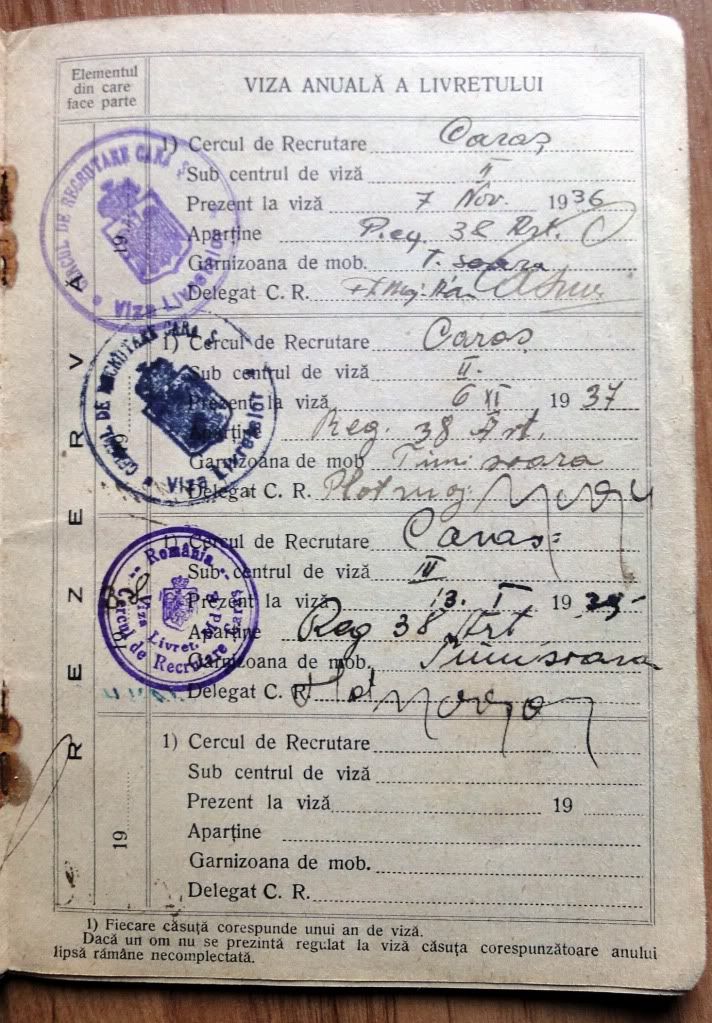 Elementul
din care
face parte
VIZA ANUALĂ A LIVRETULUI
REZERVĂ
CERCUL DE RECRUTARE CARAȘ
Viza Livretelor
19
1) Cercul de Recrutare Caraș
Sub centrul de viză II
Prezent la viză 7 Nov. 1936
Aparține Reg 38 Art.
Garnizoana de mob. T.
Delegat C. R.
CERCUL DE RECRUTARE CARAȘ
Viza Livretelor
19
1) Cercul de Recrutare Caraș
Sub centrul de viză II.
Prezent la viză 6 XI 1937
Aparține Reg. 38 Art.
Garnizoana de mob Timisoara
Delegat C. R. Plot maj.
România
Viza Livret.
Cercul de Recrutare Caraș
19 38
1) Cercul de Recrutare Caras
Sub centrul de viză IV
Prezent la viză 13. I 19
Aparține Reg 38 Art
Garnizoana de mob. Timisoara
Delegat C. R.
19
1) Cercul de Recrutare
Sub centrul de viză
Prezent la viză 19
Aparține
Garnizoana de mob.
Delegat C. R.
1) Fiecare căsuță corespunde unui an de viză.
Dacă un om nu se prezintă regulat la viză căsuța corespunzătoare anului
lipsă rămâne necomplectată.